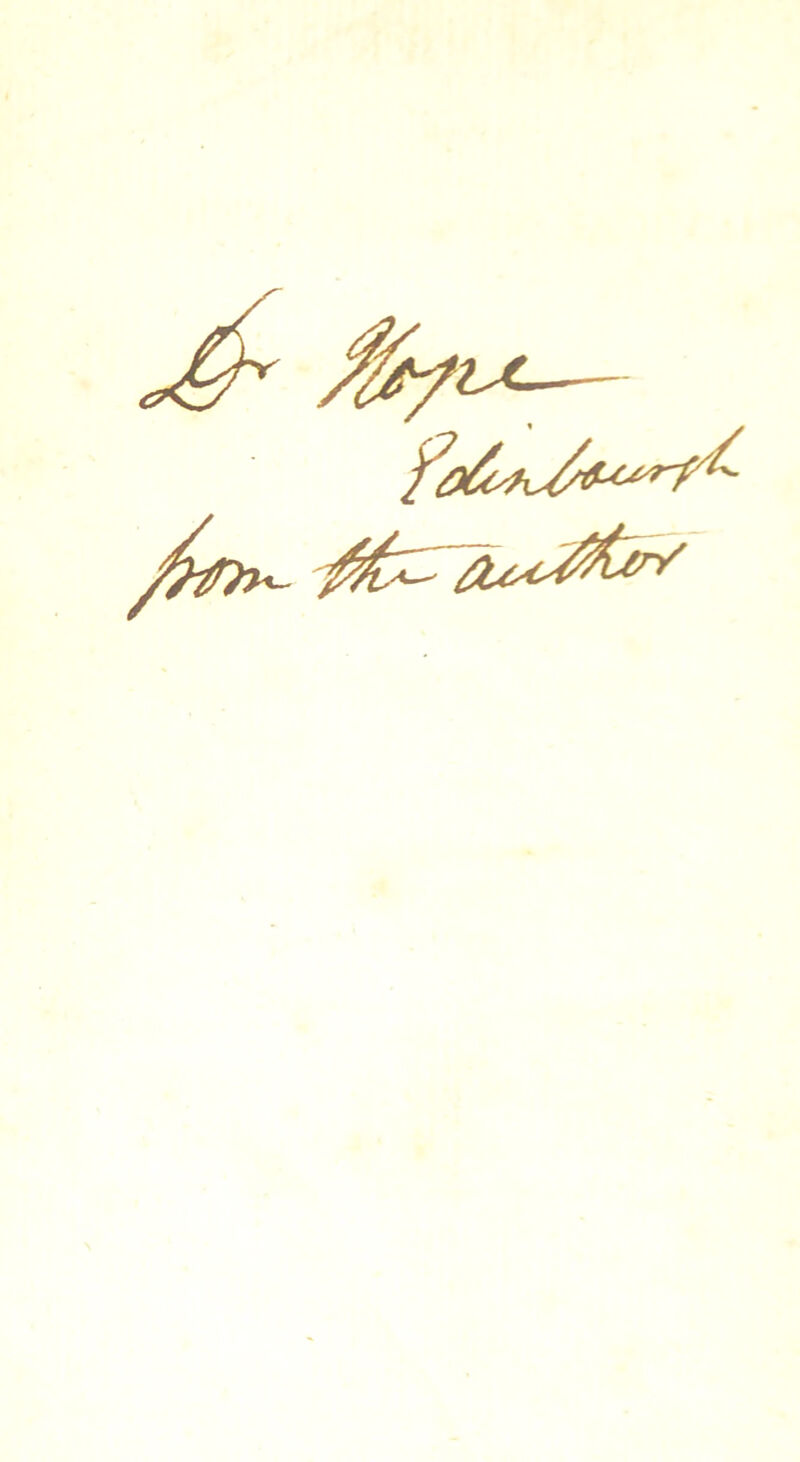 Dr Hope
Edinbourgh
from the author